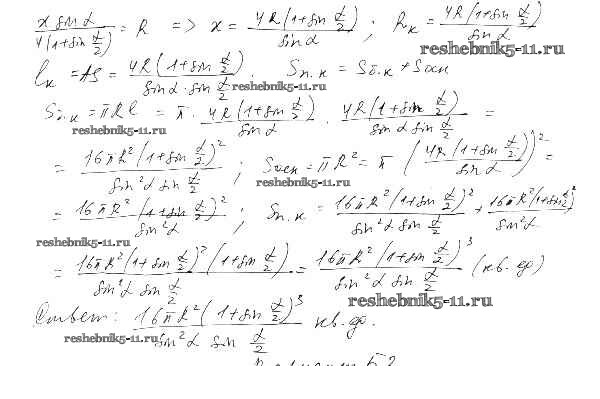 x sin α / 4(1+sin α/2) = R => x = 4R(1+sin α/2) / sin α ; Rк = 4R(1+sin α/2) / sin α
reshebnik5-11.ru
lк = AS = 4R(1+sin α/2) / sin α · sin α/2 ; Sп.к = Sб.к + Sосн
reshebnik5-11.ru
Sп.к = πRl = π · 4R(1+sin α/2) / sin α · 4R(1+sin α/2) / sin α sin α/2 =
reshebnik5-11.ru
= 16πR²(1+sin α/2)² / sin²α sin α/2 ; Sосн = πR² = π (4R(1+sin α/2) / sin α)² =
reshebnik5-11.ru
= 16πR²(1+sin α/2)² / sin²α ; Sп.к = 16πR²(1+sin α/2)² / sin²α sin α/2 + 16πR²(1+sin α/2)² / sin²α
reshebnik5-11.ru
= 16πR²(1+sin α/2)²(1+sin α/2) / sin²α sin α/2 = 16πR²(1+sin α/2)³ / sin²α sin α/2 (кв. ед)
reshebnik5-11.ru
Ответ: 16πR²(1+sin α/2)³ / sin²α sin α/2 кв. ед.
reshebnik5-11.ru